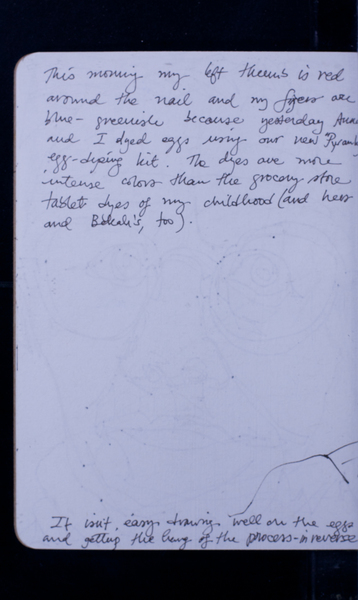 This morning my left thumb is red
around the nail and my fingers are
blue-greenish because yesterday
and I dyed eggs using our new
egg-dyeing kit. The dyes are more
intense colors than the grocery store
tablet dyes of my childhood (and hers
and too).
It isn't easy drawing well on the eggs
and getting the hang of the process-in reverse